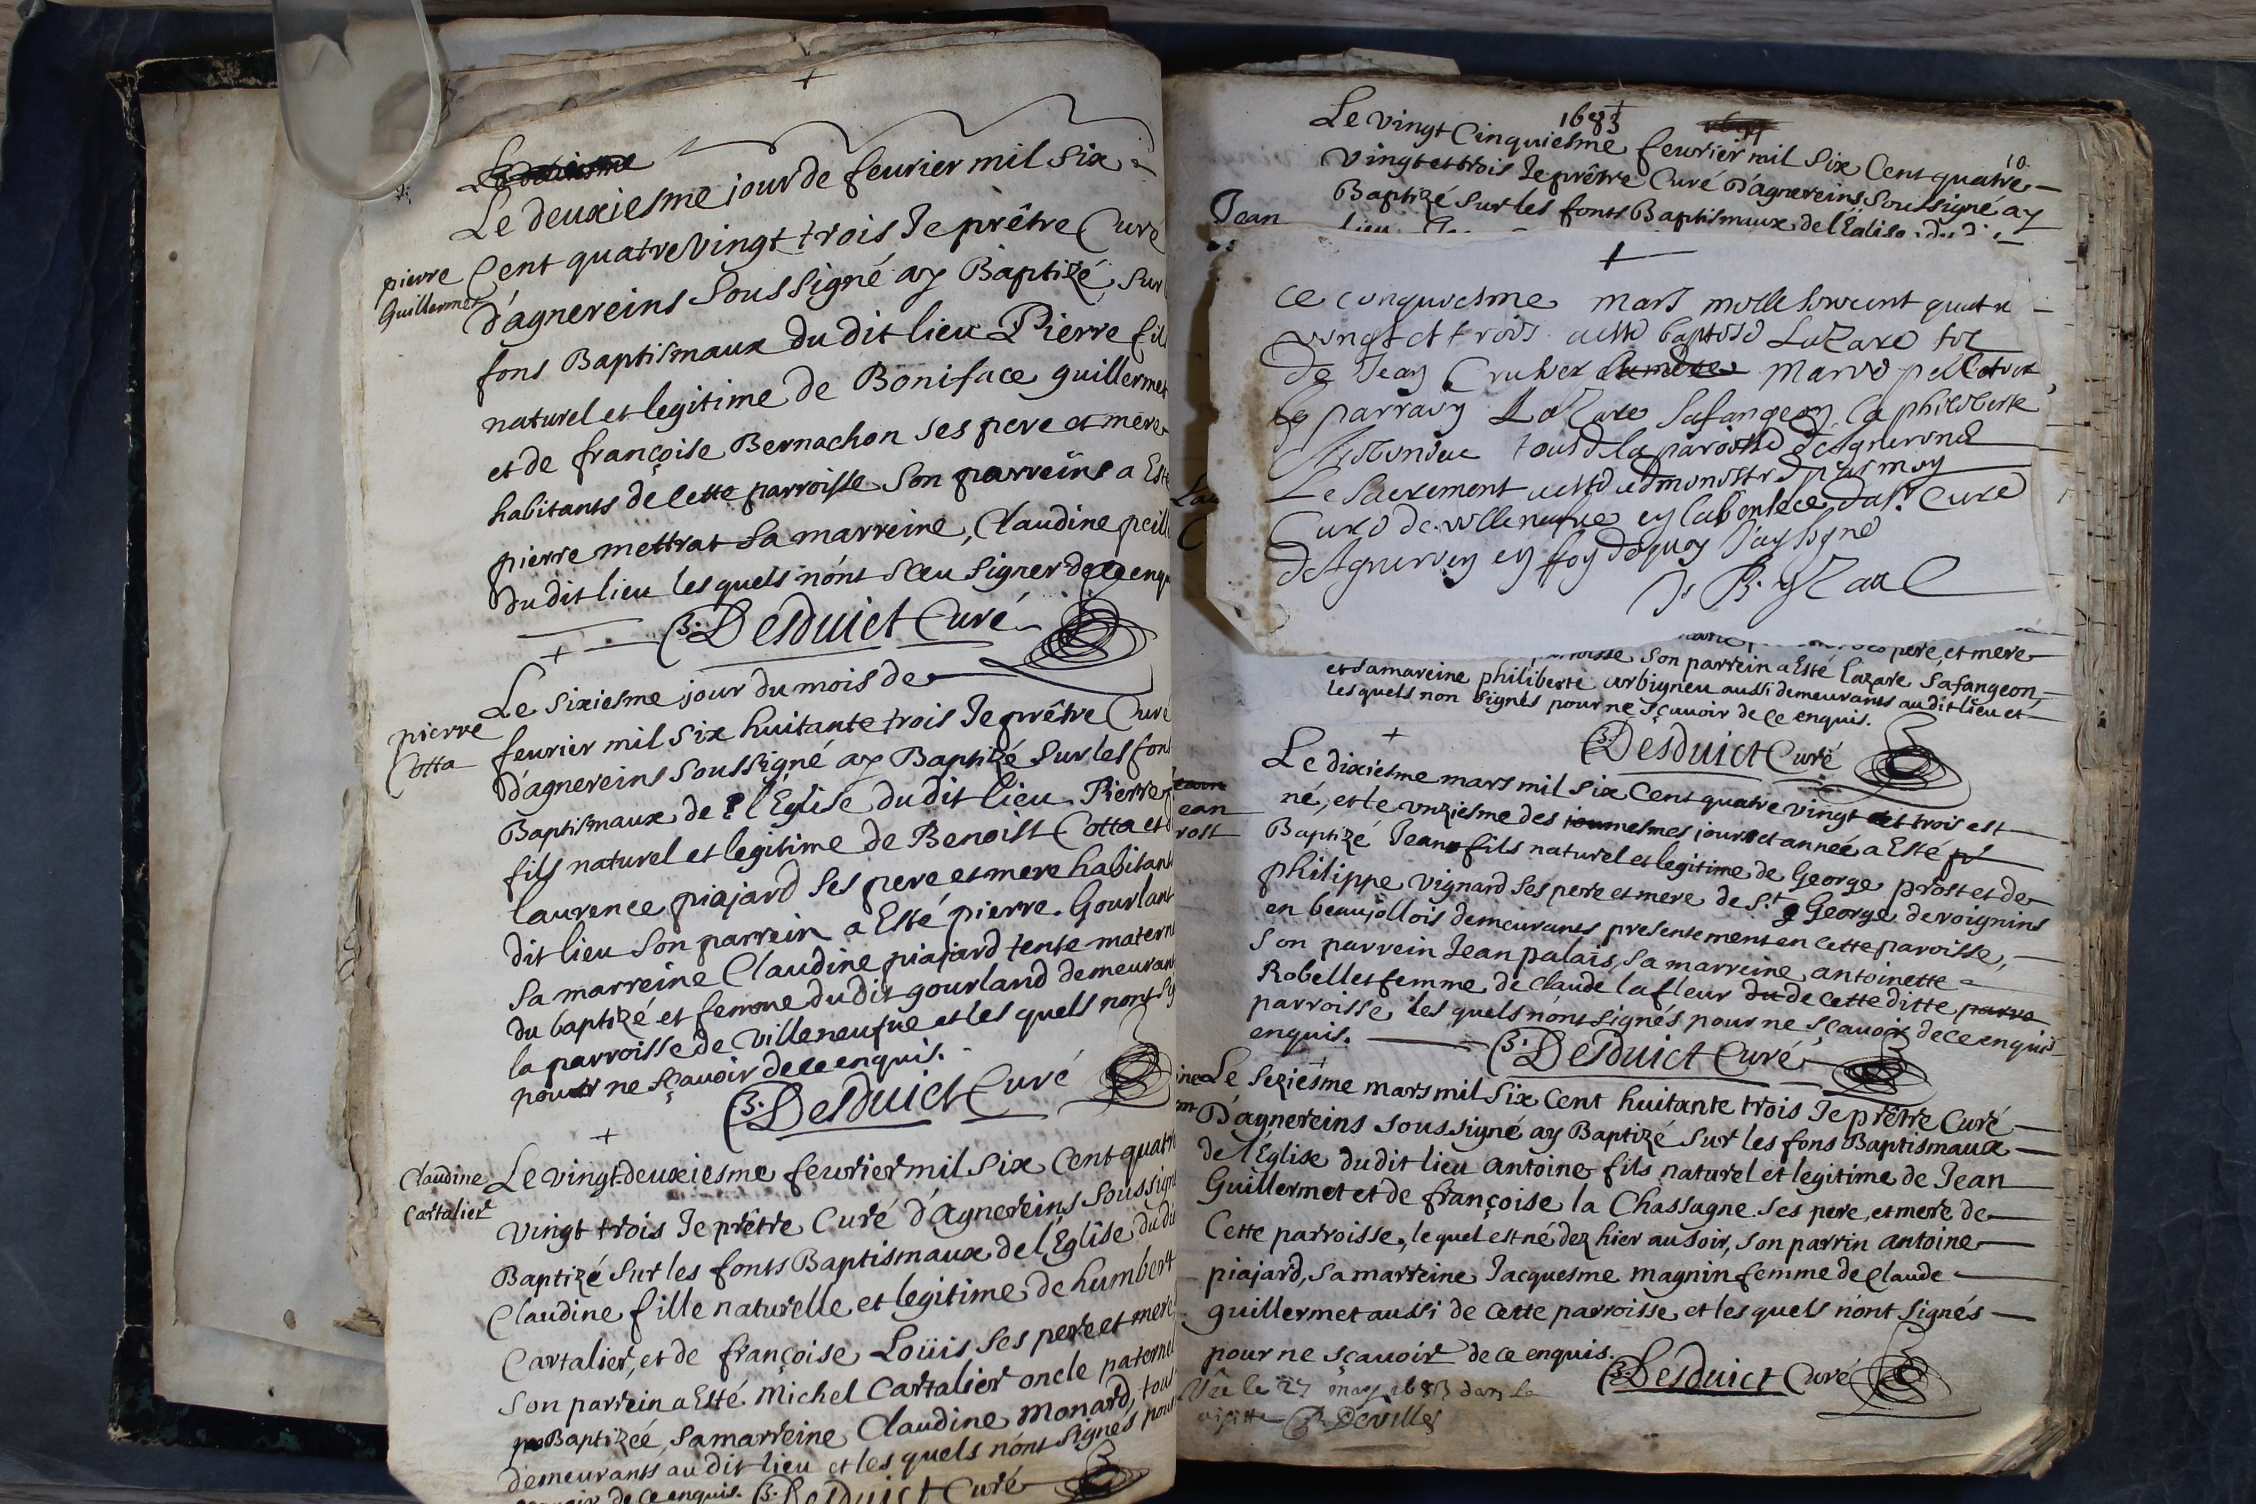 Le deuxiesme jour de feurier mil six
pierre
Guillermet
Cent quatre Vingt trois Je prêtre Curé
d'agnereins Soussigné ay Baptizé Sur
fons Baptismaux du dit lieu Pierre fil
naturel et legitime de Boniface guillermet
et de françoise Bernachon Ses pere et mere
habitants de Cette parroisse Son parreins a Esté
pierre mettrat Sa marreine, Claudine peill
du dit lieu lesquels n'ont sceu Signer de ce enqu
B. Desduict Curé
Le sixiesme jour du mois de
pierre
Cotta
feurier mil six huitante trois Je prêtre Curé
d'agnereins soussigné ay Baptizé Sur les fons
Baptismaux de l'Eglise du dit lieu Pierre
fils naturel et legitime de Benoist Cotta et d
laurence piajard Ses pere et mere habitant
dit lieu Son parrein a Esté pierre Gourlant
Sa marreine Claudine piajard tente matern
du baptizé et femme du dit gourland demeurant
la parroisse de Villeneufue et les quels nont sig
pour ne sçauoir de ce enquis.
B. Desduict Curé
Claudine
Cartalier
Le vingt-deuxiesme feurier mil six Cent quatre
vingt trois Je prêtre Curé d'Agnereins Soussigné
Baptizé sur les fonts Baptismaux de l'Eglise du dit
Claudine fille naturelle et legitime de humbert
Cartalier, et de françoise Loüis Ses pere et mere
Son parrein a Esté Michel Cartalier oncle paternel
Baptizéé, Sa marreine Claudine Monard, tous
demeurants au dit lieu et les quels n'ont Signés pour
de ce enquis. B. Desduict Curé
1683
10
Le vingt Cinquiesme feurier mil six Cent quatre
vingt et trois Je prêtre Curé d'agnereins Soussigné ay
Baptizé Sur les fonts Baptismaux de l'Eglise du d
Jean
lieu
Ce cinquiesme mars mille sixcent quatre
vingt et trois a esté baptisé Lazare fils
de Jean Cruhier Marie pelletier
le parrain Lazare Safangeon la philiberte
tous de la paroisse d'Agnereins
Le Sacrement a esté administré par moy
Curé de villeneufue en labsence du Sr. Curé
d'Agnereins en foy de quoy J'ay signé
pere, et mere
parroisse Son parrein a Esté lazare Safangeon,
et sa mareine philiberte arbigneu aussi demeurants au dit lieu et
lesquels non signés pour ne sçauoir de ce enquis.
B. Desduict Curé
Le dixiesme mars mil six Cent quatre vingt et trois est
né, et le vnziesme des mesmes jour et année a Esté
Jean
Prost
Baptizé Jean fils naturel et legitime de George prost et de
philippe vignard Ses pere et mere de St. George de roignins
en beaujollois demeurants presentement en cette paroisse,
Son parrein Jean palais, Sa marreine antoinette
Robellet femme de Claude lafleur de cette ditte
parroisse les quels n'ont Signés pour ne sçauoir de ce enquis
enquis. B. Desduict Curé
Le seziesme mars mil six Cent huitante trois Je prêtre Curé
D'agnereins soussigné ay Baptizé Sur les fons Baptismaux
de l'Eglise du dit lieu antoine fils naturel et legitime de Jean
Guillermet et de françoise la Chassagne Ses pere, et mere de
Cette parroisse, le quel est né dez hier au soir, Son parrin antoine
piajard, Sa marreine Jacquesme magnin femme de Claude
guillermet aussi de cette parroisse et les quels n'ont Signés
pour ne sçauoir de ce enquis.
B. Desduict Curé
Vû le 27 may 1683 dans la
visitte Deville